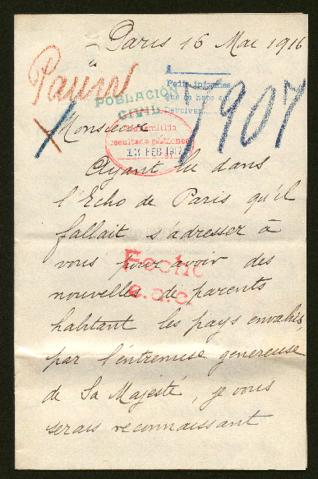 Paris 16 Mai 1916
POBLACION
CIVIL
7907
Monsieur
13 FEB 1917
Ayant lu dans
l'Echo de Paris qu'il
fallait s'adresser à
vous pour avoir des
Fecho
nouvelles de parents
habitant les pays envahis,
par l'entremise genereuse
de Sa Majesté, je vous
serais reconnaissant